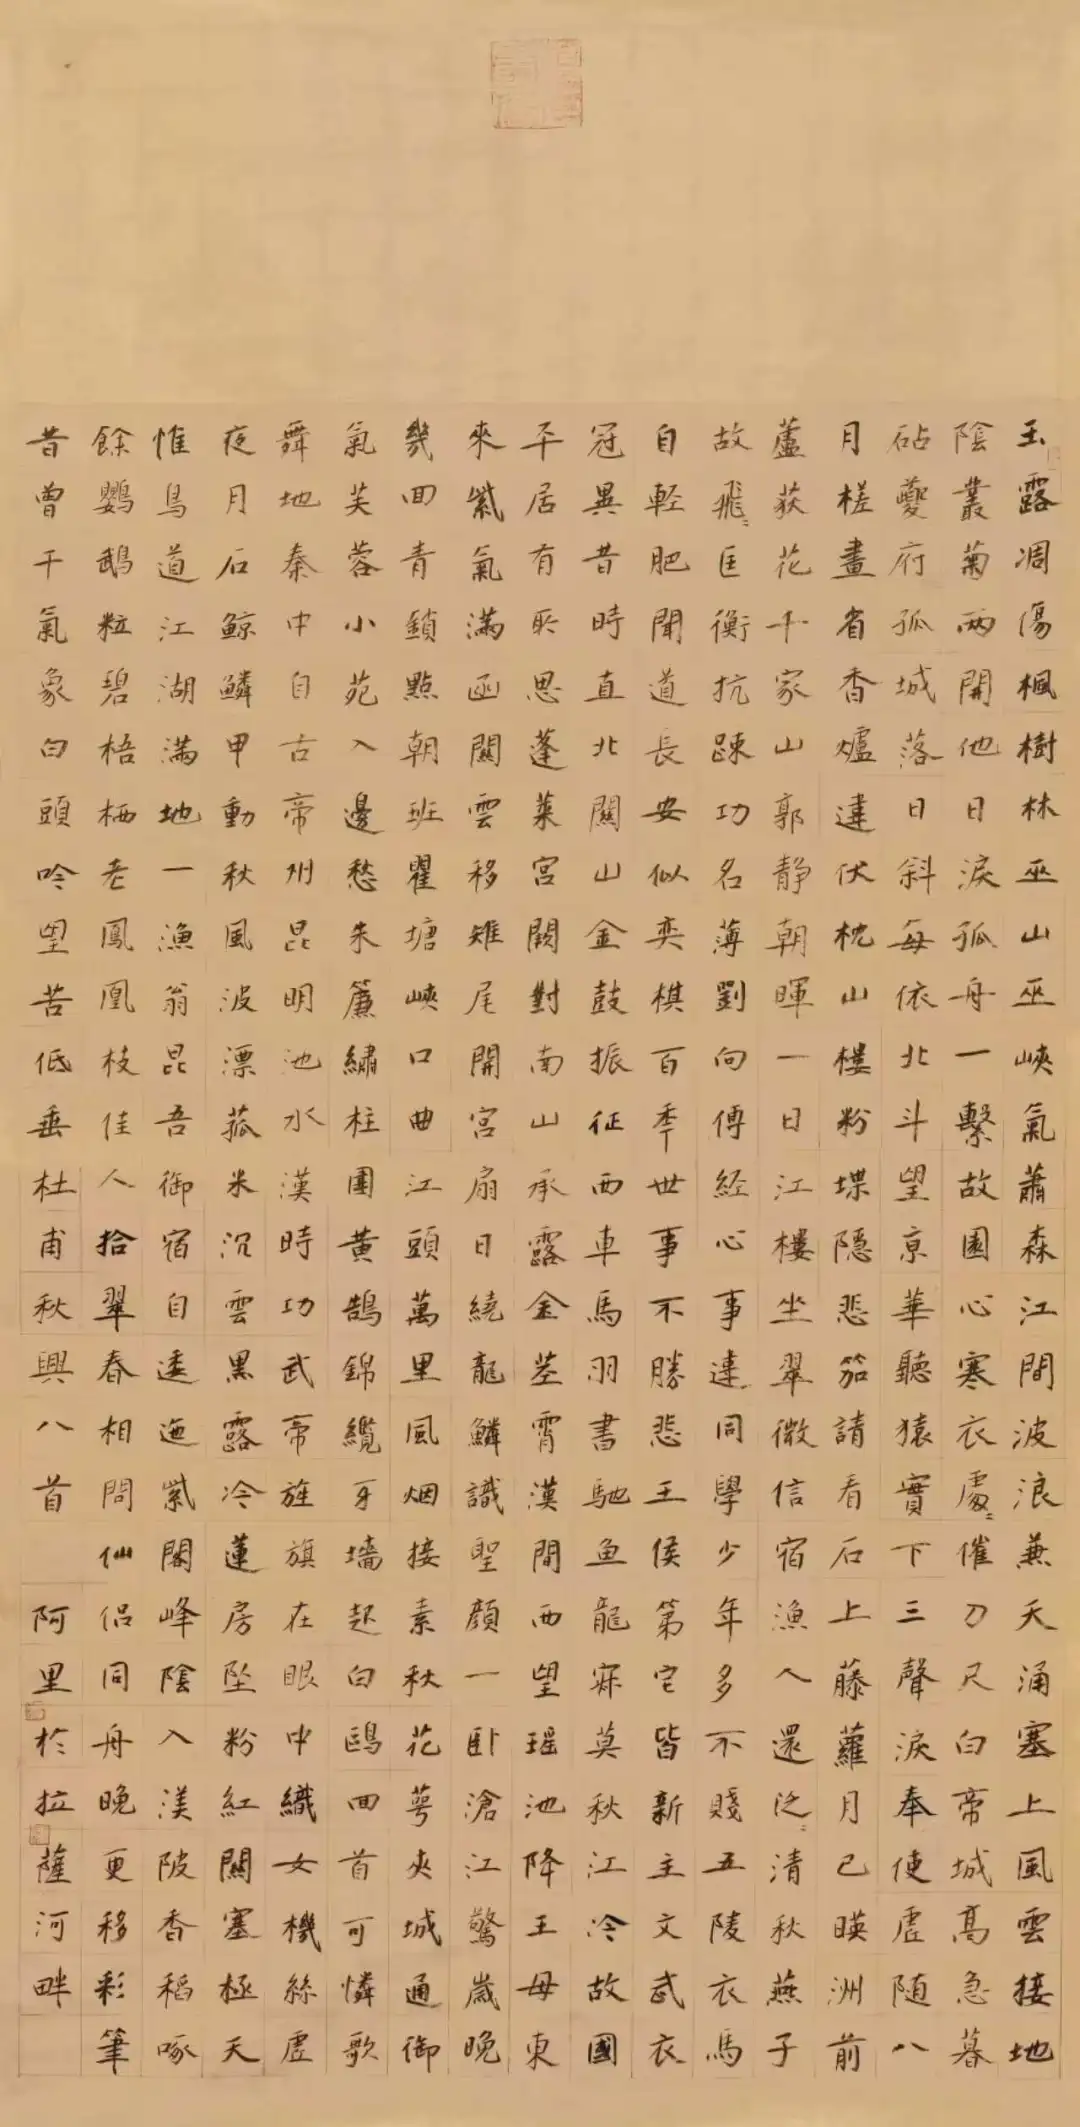 玉露凋傷楓樹林巫山巫峽氣蕭森江間波浪兼天涌塞上風雲接地
陰叢菊兩開他日淚孤舟一繫故園心寒衣處〻催刀尺白帝城高急暮
砧夔府孤城落日斜每依北斗望京華聽猿實下三聲淚奉使虛随八
月槎畫省香爐違伏枕山樓粉堞隱悲笳請看石上藤蘿月已暎洲前
蘆荻花千家山郭静朝暉一日江樓坐翠微信宿漁人還泛〻清秋燕子
故飛〻匡衡抗疎功名薄劉向傅経心事違同學少年多不賤五陵衣馬
自輕肥聞道長安似奕棋百年世事不勝悲王侯第宅皆新主文武衣
冠異昔時直北關山金鼓振征西車馬羽書馳鱼龍寂莫秋江冷故國
平居有所思蓬萊宮闕對南山承露金莖霄漢間西望瑶池降王母東
來紫氣滿函關雲移雉尾開宮扇日繞龍鱗識聖顔一卧滄江驚歲晚
幾回青鎖點朝班瞿塘峽口曲江頭萬里風烟接素秋花萼夾城通御
氣芙蓉小苑入邊愁朱簾繡柱圍黃鵠錦纜牙墻起白鷗回首可憐歌
舞地秦中自古帝州昆明池水漢時功武帝旌旗在眼中織女機絲虛
夜月石鯨鱗甲動秋風波漂菰米沉雲黑露冷蓮房墜粉紅關塞極天
惟鳥道江湖滿地一漁翁昆吾御宿自逶迤紫閣峰陰入渼陂香稻啄
餘鸚鵡粒碧梧栖老鳳凰枝佳人拾翠春相問仙侣同舟晚更移彩筆
昔曾干氣象白頭吟望苦低垂杜甫秋興八首 阿里於拉薩河畔